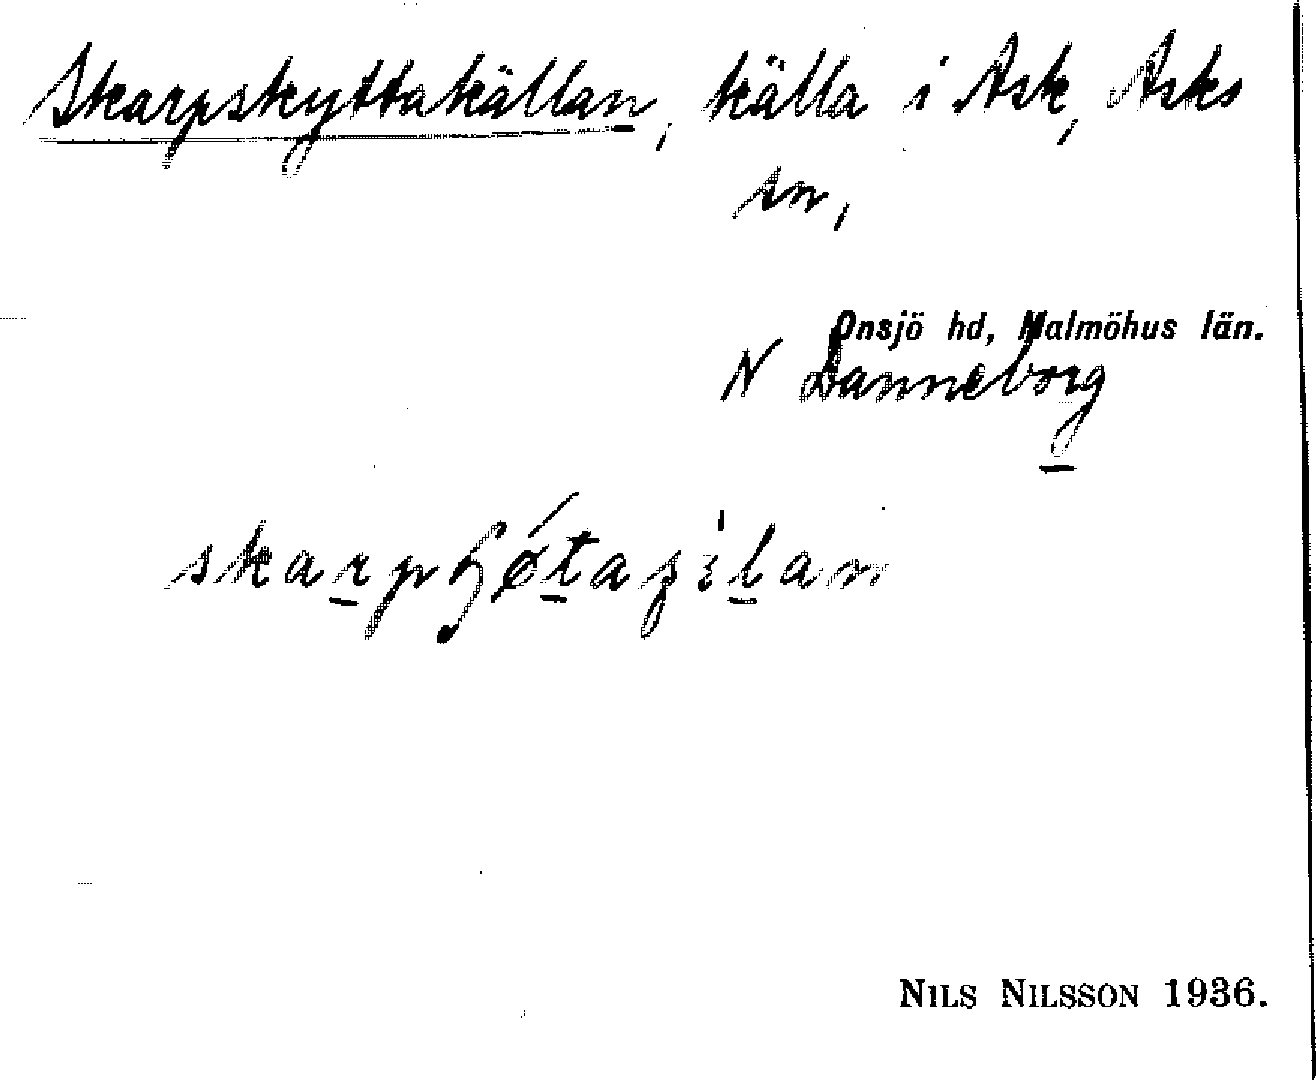 Skarpskyttakällan, källa i Ask, Asks
sn,
Onsjö hd, Malmöhus län.
N Danneborg
NILS NILSSON 1936.